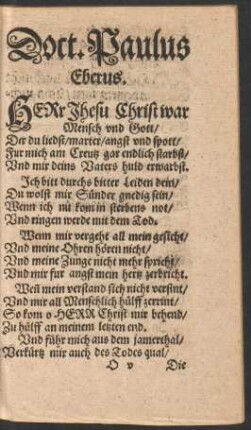 Doct. Paulus
Eberus.
HERr Jhesu Christ war
Mensch vnd Gott/
Der du liedst/marter/angst vnd spott/
Fur mich am Creutz gar endlich starbst/
Vnd mir deins Vaters huld erwarbst.
Ich bitt durchs bitter Leiden dein/
Du wolst mir Sünder gnedig sein/
Wenn ich nū kom in sterbens not/
Vnd ringen werde mit dem Tod.
Wenn mir vergeht all mein gesicht/
Vnd meine Ohren hören nicht/
Vnd meine Zunge nicht mehr spricht/
Vnd mir fur angst mein hertz zerbricht.
Weñ mein verstand sich nicht versint/
Vnd mir all Menschlich hülff zerrint/
So kom o HERR Christ mir behend/
Zu hülff an meinem letzten end.
Vnd führ mich aus dem jamerthal/
Verkürtz mir auch des Todes qual/
O v Die